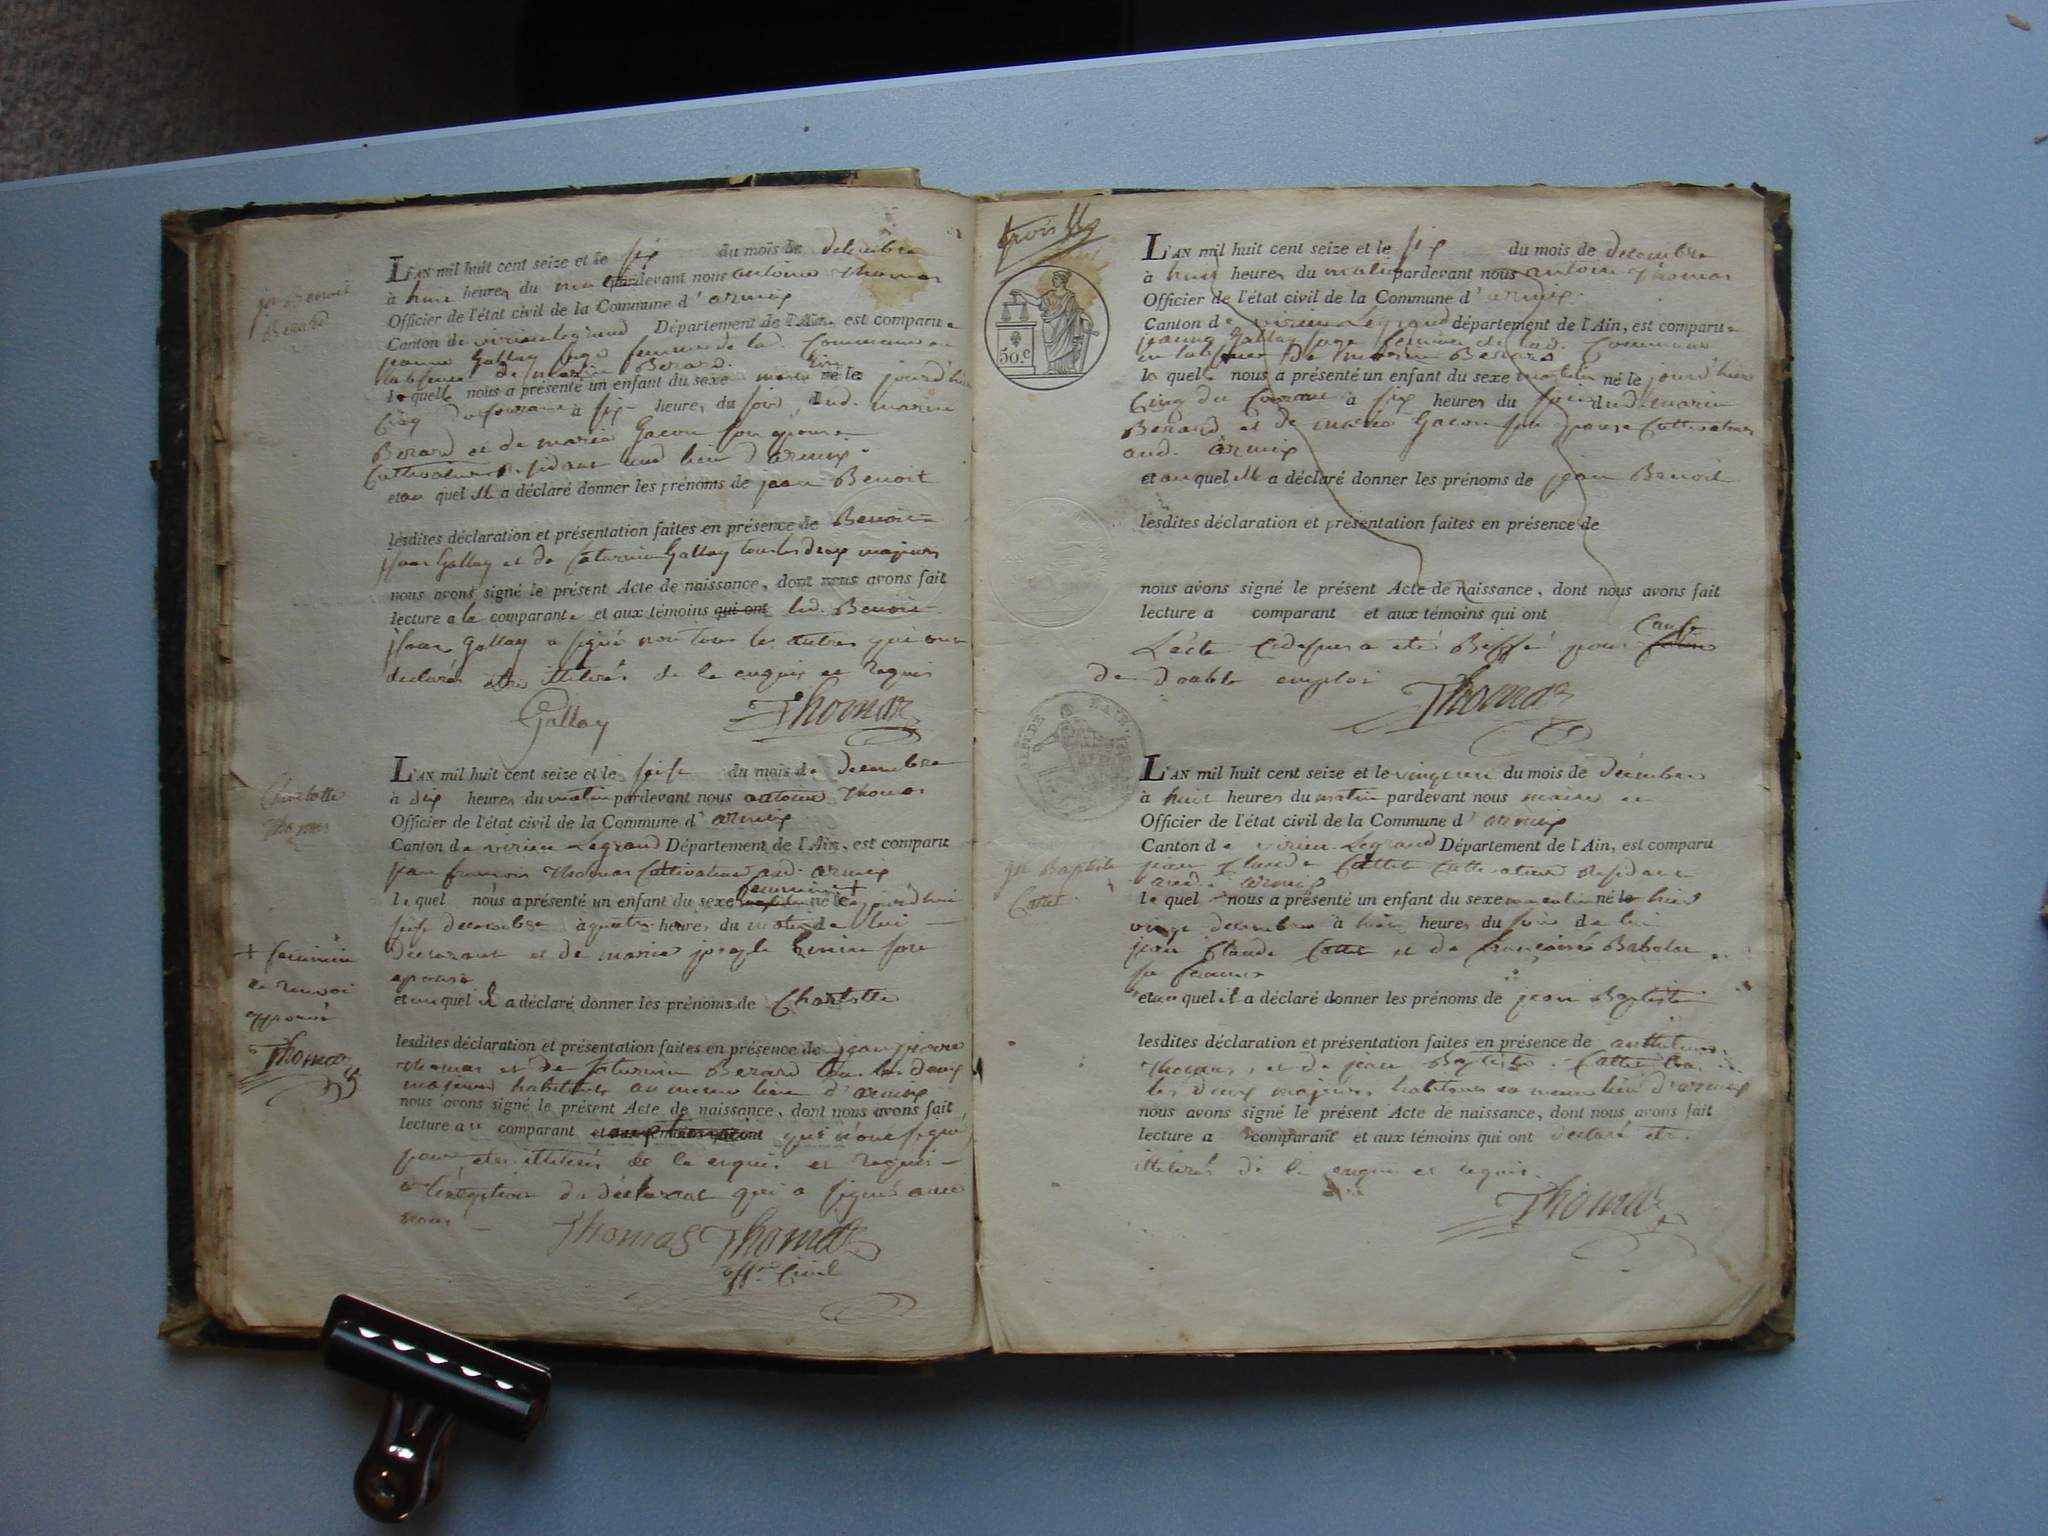 jn Benoit
Berard
L'AN mil huit cent seize et le six du mois de decembre
à huit heures du matin pardevant nous antoine Thomas
Officier de l'état civil de la Commune d'armix
Canton de virieu legrand Département de l'Ain, est comparue
jeanne Gallay sage femme de lad. Commune en
labsence de marin Berard.
laquelle nous a présenté un enfant du sexe né le jourd'hier
Cinq du Courant à six heures du soir, dud. marin
Berard et de marie Gacon son epouse
Cultivateurs residant aud. lieu d'armix.
et au quel elle a déclaré donner les prénoms de jean Benoit
lesdites déclaration et présentation faites en présence de Benoit
Gallay et de Saturnin Gallay tous les deux majeurs
nous avons signé le présent Acte de naissance, dont nous avons fait
lecture a la comparante et aux témoins qui ont led. Benoit
Gallay a signé non tous les autres qui ont
declarés etre illitérés de le enquis et requis
Gallay Thomas
Charlotte
Thomas
L'AN mil huit cent seize et le seise du mois de decembre
à dix heures du matin pardevant nous antoine Thomas
Officier de l'état civil de la Commune d'armix
Canton de virieu Legrand Département de l'Ain, est comparu
jean françois Thomas Cultivateur aud. armix
feminin +
le quel nous a présenté un enfant du sexe masculin né le jourd'hui
seise decembre à quatre heures du matin de lui
Declarant et de marie josephe son
epouse
et au quel il a déclaré donner les prénoms de Charlotte
+ feminin
le renvoi
approuvé
Thomas
lesdites déclaration et présentation faites en présence de jean pierre
Thomas et de Saturnin Berard tous les deux
majeurs habitants au meme lieu d'armix
nous avons signé le présent Acte de naissance, dont nous avons fait
lecture au comparant et aux témoins qui ont qui n'ont signé
pour etre illitérés de le enquis et requis
a l'exception du déclarant qui a signé avec
nous
Thomas Thomas
off. Civil
trois
50.c
L'AN mil huit cent seize et le six du mois de decembre
à huit heures du matin pardevant nous antoine Thomas
Officier de l'état civil de la Commune d'armix.
Canton de virieu Legrand département de l'Ain, est comparue
jeanne Gallay sage femme de lad. Commune
en labsence de marin Berard
la quelle nous a présenté un enfant du sexe masculin né le jourd'hier
Cinq du Courant à six heures du soir dud. marin
Berard et de marie Gacon son epouse Cultivateurs
aud. armix
et au quel elle a déclaré donner les prénoms de jean Benoit
lesdites déclaration et présentation faites en présence de
nous avons signé le présent Acte de naissance, dont nous avons fait
lecture a comparant et aux témoins qui ont
Cause
L'acte Cidessus a eté Biffé pour
de double emploi
Thomas
jn Baptiste
Cattet
L'AN mil huit cent seize et le vingt un du mois de décembre
à huit heures du matin pardevant nous maire et
Officier de l'état civil de la Commune d'armix
Canton de virieu Legrand Département de l'Ain, est comparu
jean Claude Cattet Cultivateur residant
aud. armix
le quel nous a présenté un enfant du sexe masculin né le hier
vingt decembre à heures du soir de lui
jean Claude Cattet et de françoise
sa femme
et au quel il a déclaré donner les prénoms de jean Baptiste
lesdites déclaration et présentation faites en présence de anthelme
Thomas, et de jean Baptiste Cattet tous
les deux majeurs habitants au meme lieu d'armix
nous avons signé le présent Acte de naissance, dont nous avons fait
lecture a comparant et aux témoins qui ont declaré etre
illitérés de le enquis et requis.
Thomas